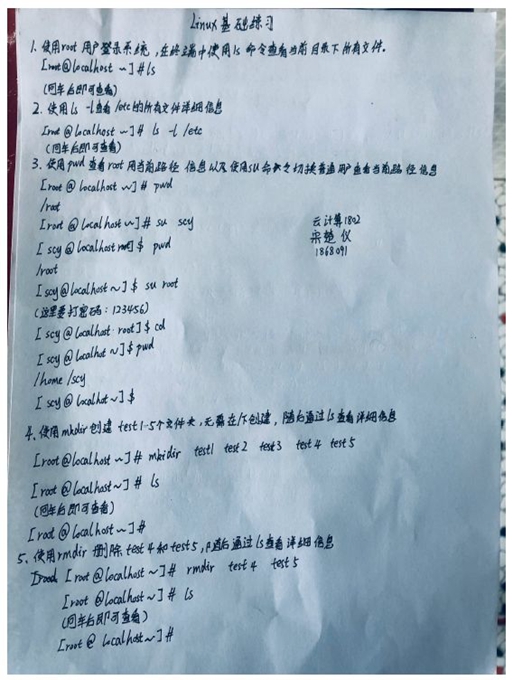 Linux基础练习
1. 使用root 用户登录系统，在终端中使用ls 命令查看当前目录下所有文件。
[root@localhost ~]#ls
(回车后即可查看)
2. 使用ls -l查看/etc的所有文件详细信息
[root @localhost ~]# ls -l /etc
(回车后即可查看)
3. 使用pwd 查看root 用当前路径 信息以及使用su命令切换普通用户查看当前路径信息
[root @ localhost ~]# pwd
/root
[root @ localhost ~]# su scy
[ scy@localhost root] $ pwd
/root
[ scy@localhost ~] $ su root
(这里要打密码：123456)
[ scy@localhost root] $ cd
[ scy@localhost ~] $ pwd
/home/scy
[ scy@localhost ~] $
云计算1802
宋楚仪
1868091
4. 使用mkdir创建 test1-5个文件夹，无需在/下创建，随后通过ls查看详细信息
[root@localhost ~]# mkidir test1 test2 test3 test4 test5
[root @localhost ~] # ls
(回车后即可查看)
[root @localhost ~] #
5. 使用rmdir 删除 test4和test5，随后通过ls查看详细信息
[root @localhost ~]# rmdir test4 test5
[root @localhost ~] # ls
(回车后即可查看)
[root @ localhost ~] #